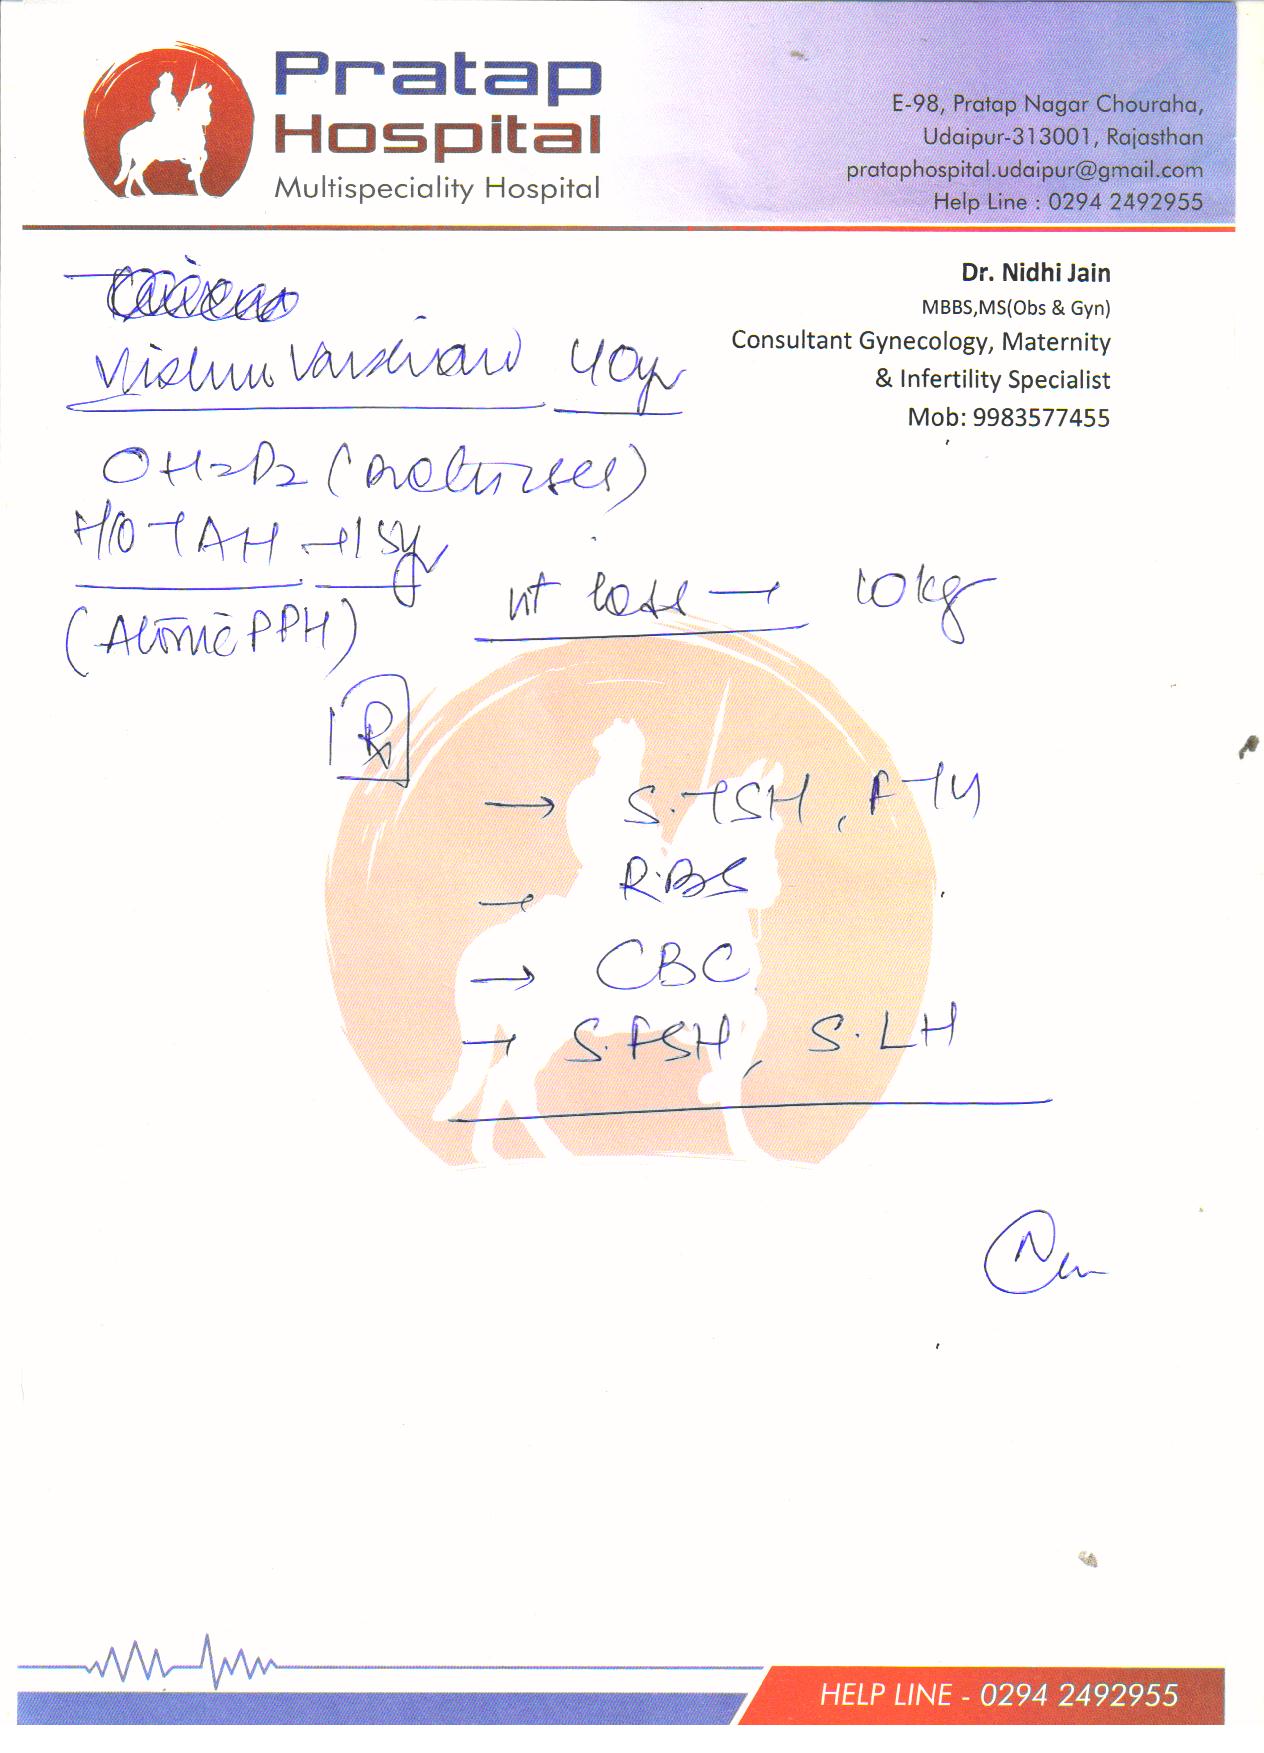 Pratap
Hospital
Multispeciality Hospital
E-98, Pratap Nagar Chouraha,
Udaipur-313001, Rajasthan
prataphospital.udaipur@gmail.com
Help Line : 0294 2492955
Dr. Nidhi Jain
MBBS,MS(Obs & Gyn)
Consultant Gynecology, Maternity
& Infertility Specialist
Mob: 9983577455
40yr
OH=P2 (
H/O TAH → 15yr
(Atonic PPH)
wt loss → 10kg
Rx
→ S.TSH, FT4
→ RBS
→ CBC
→ S.FSH, S.LH
HELP LINE - 0294 2492955